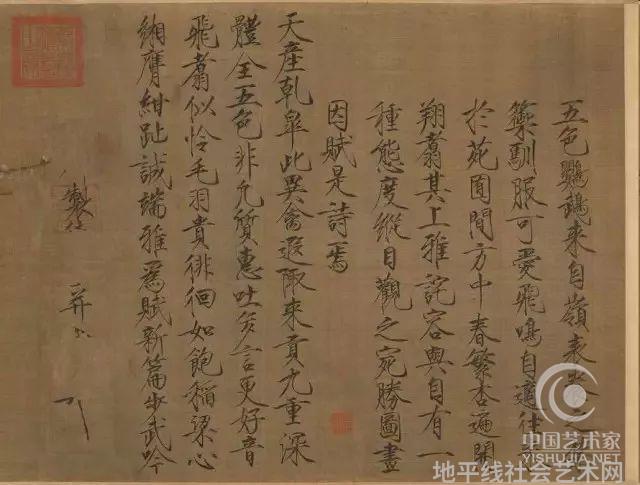 五色鸚鵡來自嶺表養之
籞馴服可愛飛鳴自適往
於苑囿間方中春繁杏遍開
翔翥其上雅詫容與自有一
種態度縱目觀之宛勝圖畫
因賦是詩焉
天產乾皋此異禽遐陬來貢九重深
體全五色非凡質惠吐多言更好音
飛翥似憐毛羽貴徘徊如飽稻粱心
緗膺紺趾誠端雅爲賦新篇步武吟
製
并書
中国艺术家
YISHUJIA.NET
地平线社会艺术网